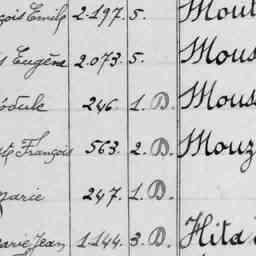 çois Emile 2.197. 5. Mout
s Eugène 2.073. 5. Mous
édule 246. 1. D. Mous
te François 563. 2. D. Mouz
marie 247. 1. D.
marie Jean 1.144. 3. D. Hita